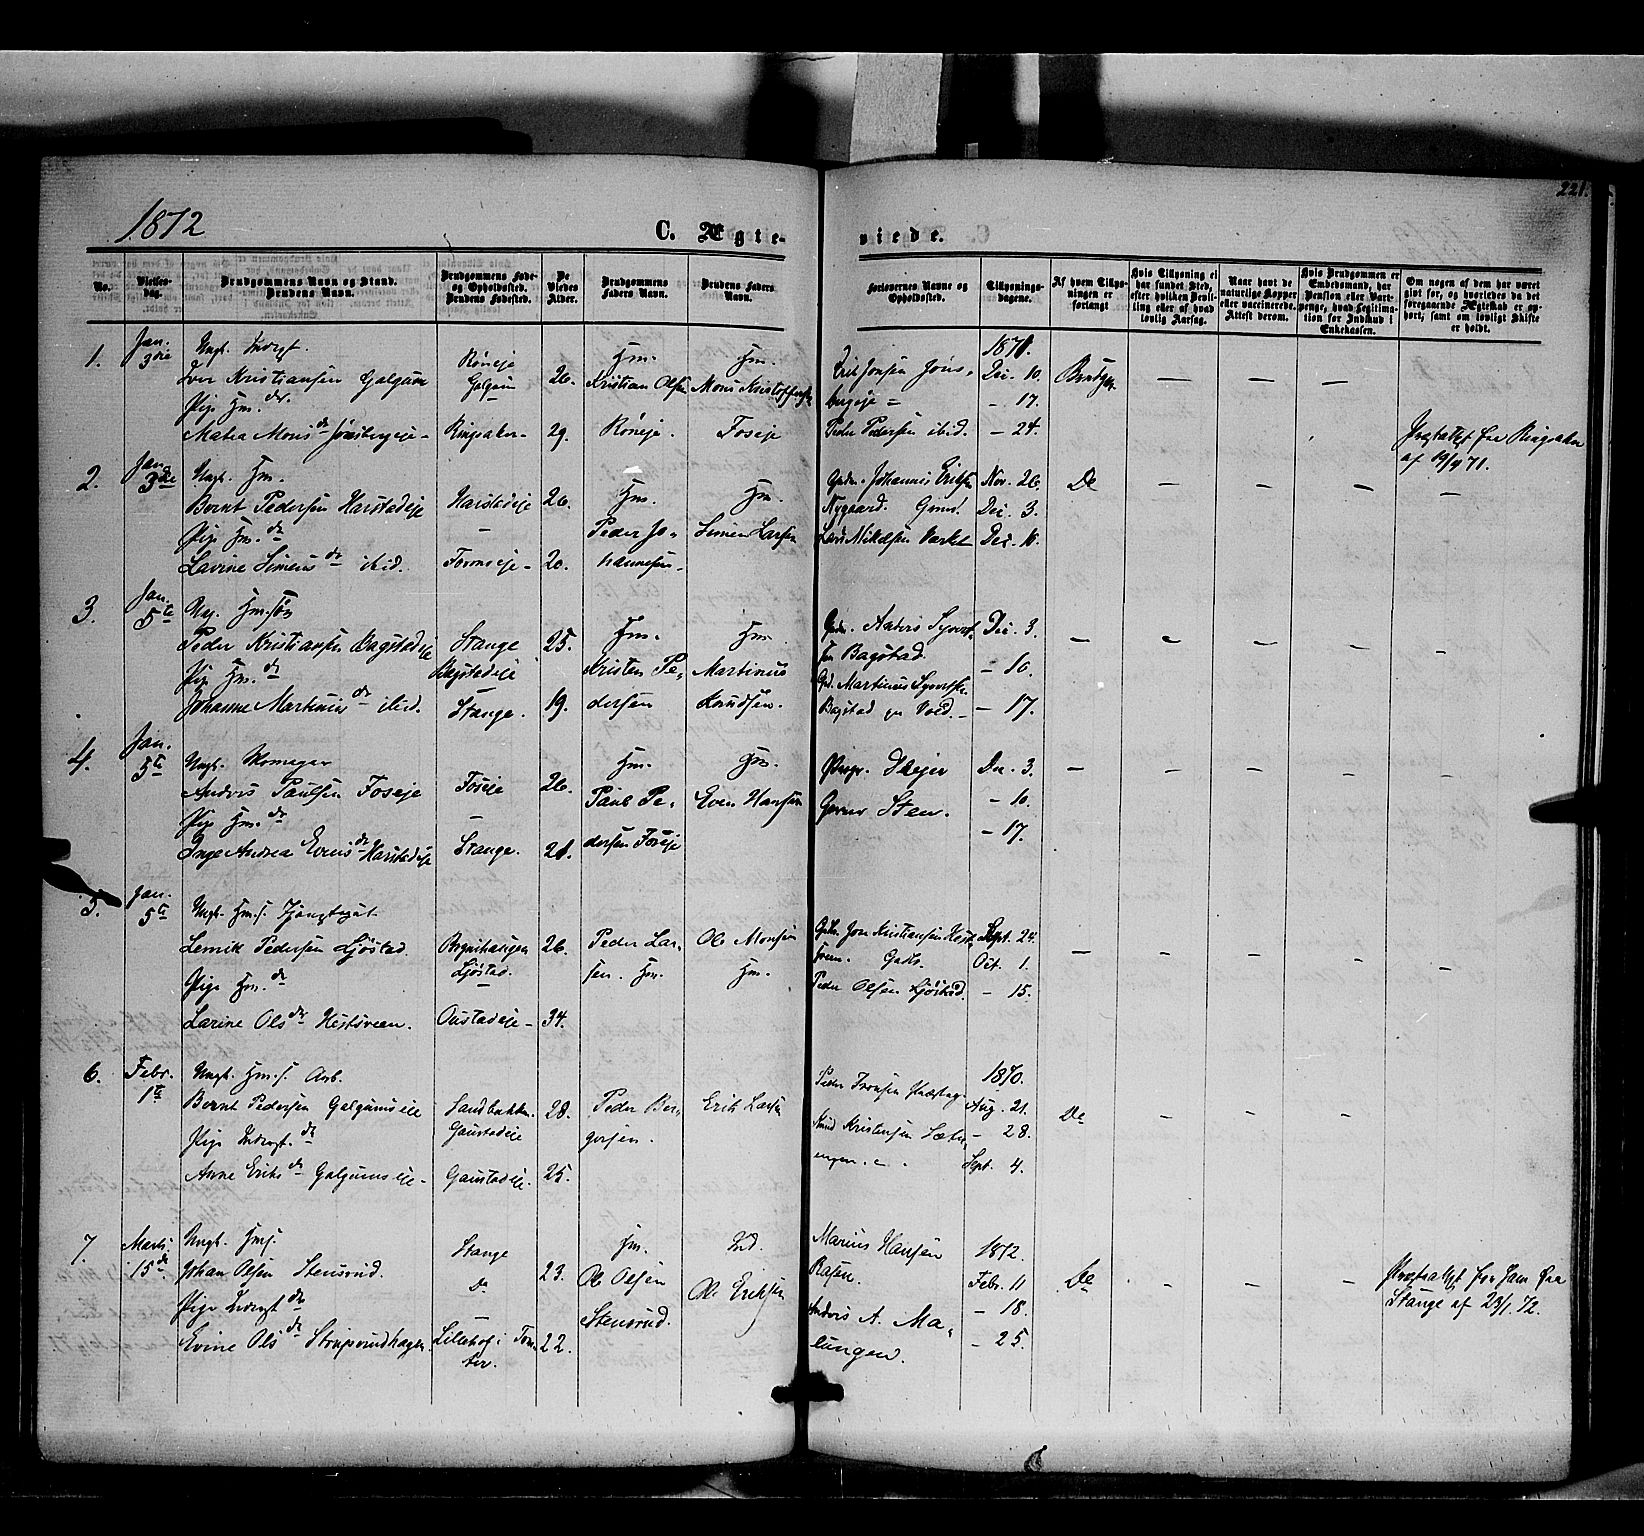 221.
1872
C. Ægte-
viede.
No.
Vielses-
dag.
Brudgommens Navn og Stand.
Brudens Navn.
Brudgommens Føde-
og Opholdssted.
Brudens Fødested.
De
Viedes
Alder.
Brudgommens
Faders Navn.
Brudens Faders
Navn.
Forlovernes Navne og
Opholdssted.
Tillysnings-
dagene.
Af hvem Tillys-
ningen er
forlangt
Hvis Tillysning ei
har fundet Sted,
efter hvilken Bevil-
ling eller af hvad
lovlig Aarsag.
Naar havt de
naturlige Kopper
eller vaccinerede.
Attest derom.
Hvis Brudgommen er
Embedsmand, har
Pension eller Vart-
penge, hvad Legitima-
tion for Indskud i
Enkekassen.
Om nogen af dem har været
givt før, og hvorledes da det
foregaaende Ægteskab er op-
hørt; samt om lovligt Skifte
er holdt.
1.
Jan.
3die
Ungk. Inderst.
Iver Kristiansen Galgum
Pige Hm. dr.
Mathea Mons dr Jønsbergeje -
Røneje
Galgum
Ringsaker -
26.
29.
Hm.
Kristian Olsen
Røneje.
Hm.
Mons Kristoffersen
Foseje
Erik Jonsen Jøns-
bergeje =
Peder Pedersen ibid.
1871.
Dec. 10.
- 17.
- 24.
Brudgom
— — —
Præstattest fra Ringsaker
2.
Jan.
3die
Ungk. Hm.
Bernt Pedersen Harstadeje
Pige Hm. dr
Lavine Simens dr ibid.
Harstadeje
—
20.
26.
Hm.
Peder Jo-
hannesen -
Hm.
Simen Larsen
Grdm. Johannes Eriksen
Nygaard. Grdm.
Lars Mikelsen
Nov. 26
Dec. 3.
Dec. 10.
Do
— — — —
3.
Jan.
5te
Ung. Hm.søn
Peder Kristiansen Bagstadeje
Pige Hm. dr
Johanne Martinius dr ibid.
Stange
Bagstadeje
—
Stange.
25.
19.
Hm.
Kristen Pe-
dersen
Hm.
Martinius
Knudsen.
Grdm. Anders Syverts-
sen Bagstad
Grd. Martinius Syvertsen
Bagstad
Dec. 3.
- 10.
- 17.
— — — — —
4.
Jan.
5te
Ungk. Skomager
Anders Paulsen Foseje
Pige Hm. dr
Inge Andrea Evens dr Harstadeje
Foseje
—
Stange.
26.
21.
Hm.
Paul Pe-
dersen Foseje
Hm.
Even Hansen
Gorud Sten.
Dec. 3.
- 10.
- 17.
— — — — —
5.
Jan.
5te
Ungk. Hm.s.
Lemik Pedersen Ljøstad.
Pige Hm. dr
Larine Ols dr Hestsveen.
Ljøstad.
—
Gustadeje -
26.
34.
Peder Lar-
sen. Hm.
Ole Monsen
Hm.
Grdm. Jon Kristiansen
Peder Olsen Ljøstad.
Sept. 24.
Oct. 1.
- 15.
— — — — —
6.
Febr.
1ste
Ungk. Hm.s. Arb.
Bernt Pedersen Galgumseie
Pige Inderst. dr
Anne Eriks dr Galgumseje -
Sandbakken.
Gaustadeje
Gaustadeje.
28.
25.
Peder Ber-
gersen.
Erik Larsen
Peder
Kristensen Sæter-
engen.
1870.
Aug. 21.
- 28.
Sept. 4.
Do
— — — —
7.
Marts.
15de
Ungk. Hms.
Johan Olsen Stensrud.
Pige Inderst. dr
Evine Ols dr
Stange
Do
—
23.
22.
Hm.
Ole Olsen
Stensrud.
Ind.
Ole Eriksen
Marius Hansen
Rasen.
Anders A. Ma-
lungen.
1872.
Febr. 11
- 18.
- 25.
Do
— — — —
Præstattest for ham fra
Stange af 23/1. 72.